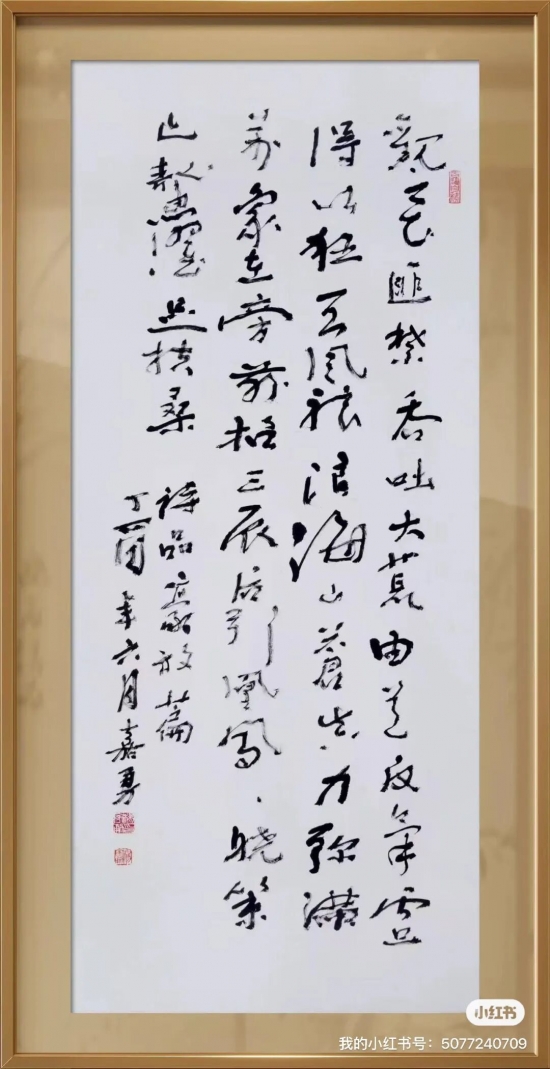 觀花匪禁吞吐大荒由道反氣處
得以狂天風浪浪海山蒼真力弥滿
萬象在旁前招三辰后引凰鳳、曉策
六鰲濯足扶桑 詩品豪放篇
丁酉年六月嘉勇
小红书
我的小红书号：5077240709